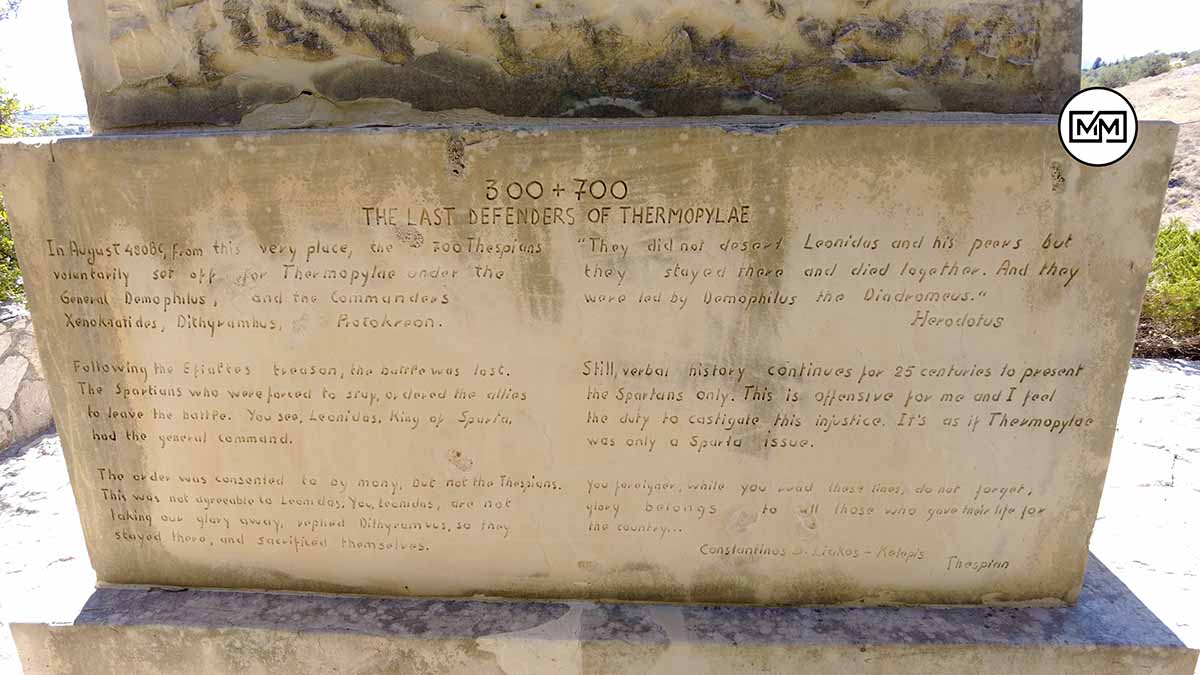 300 + 700
THE LAST DEFENDERS OF THERMOPYLAE
In August 480BC, from this very place, the 700 Thespians
voluntarily set off for Thermopylae under the
General Demophilus, and the Commanders
Xenokratides, Dithyrambus, Protokreon.
Following the Efialtes treason, the battle was lost.
The Spartians who were forced to stay, ordered the allies
to leave the battle. You see, Leonidas, King of Sparta,
had the general command.
The order was consented to by many, but not the Thespians.
This was not agreeable to Leonidas. You, Leonidas, are not
taking our glory away, replied Dithyramvus, so they
stayed there, and sacrificed themselves.
"They did not desert Leonidas and his peers but
they stayed there and died together. And they
were led by Demophilus the Diadromeus."
Herodotus
Still, verbal history continues for 25 centuries to present
the Spartans only. This is offensive for me and I feel
the duty to castigate this injustice. It's as if Thermopylae
was only a Sparta issue.
You foreigner, while you read these lines, do not forget,
glory belongs to all those who gave their life for
the country...
Constantinos D. Liakos - Kelepis
Thespian
MM